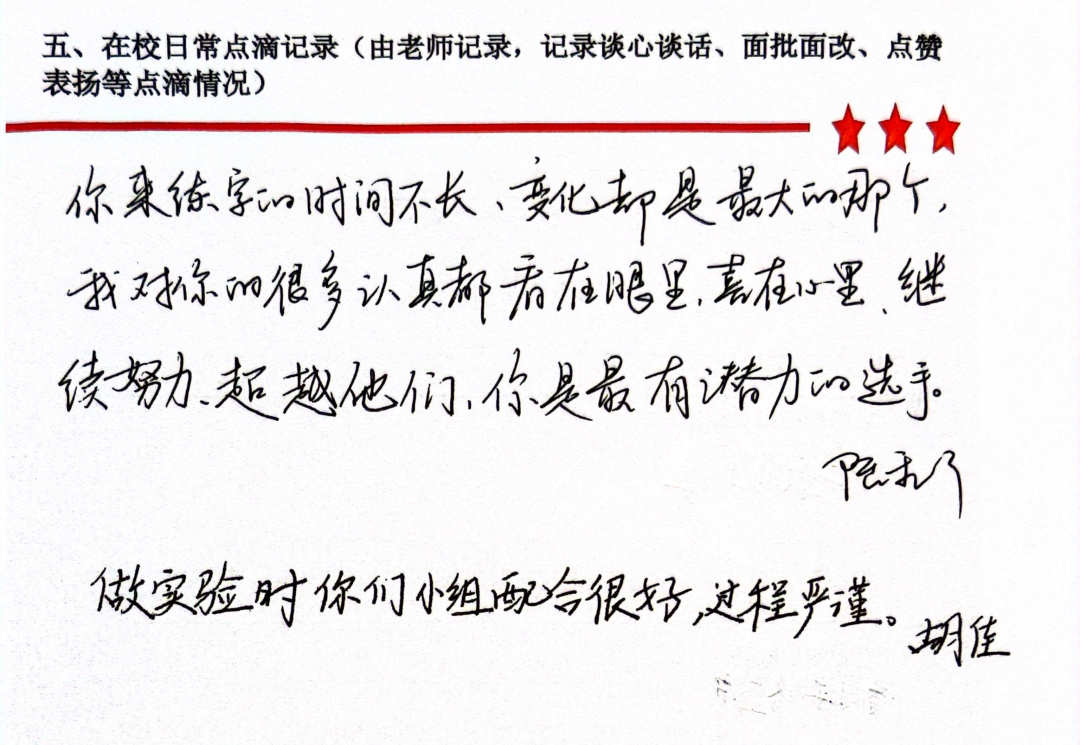 五、在校日常点滴记录（由老师记录，记录谈心谈话、面批面改、点赞
表扬等点滴情况）
你来练字的时间不长、变化却是最大的那个，
我对你的很多认真都看在眼里，喜在心里、继
续努力、超越他们，你是最有潜力的选手。
做实验时你们小组配合很好，过程严谨。
胡佳